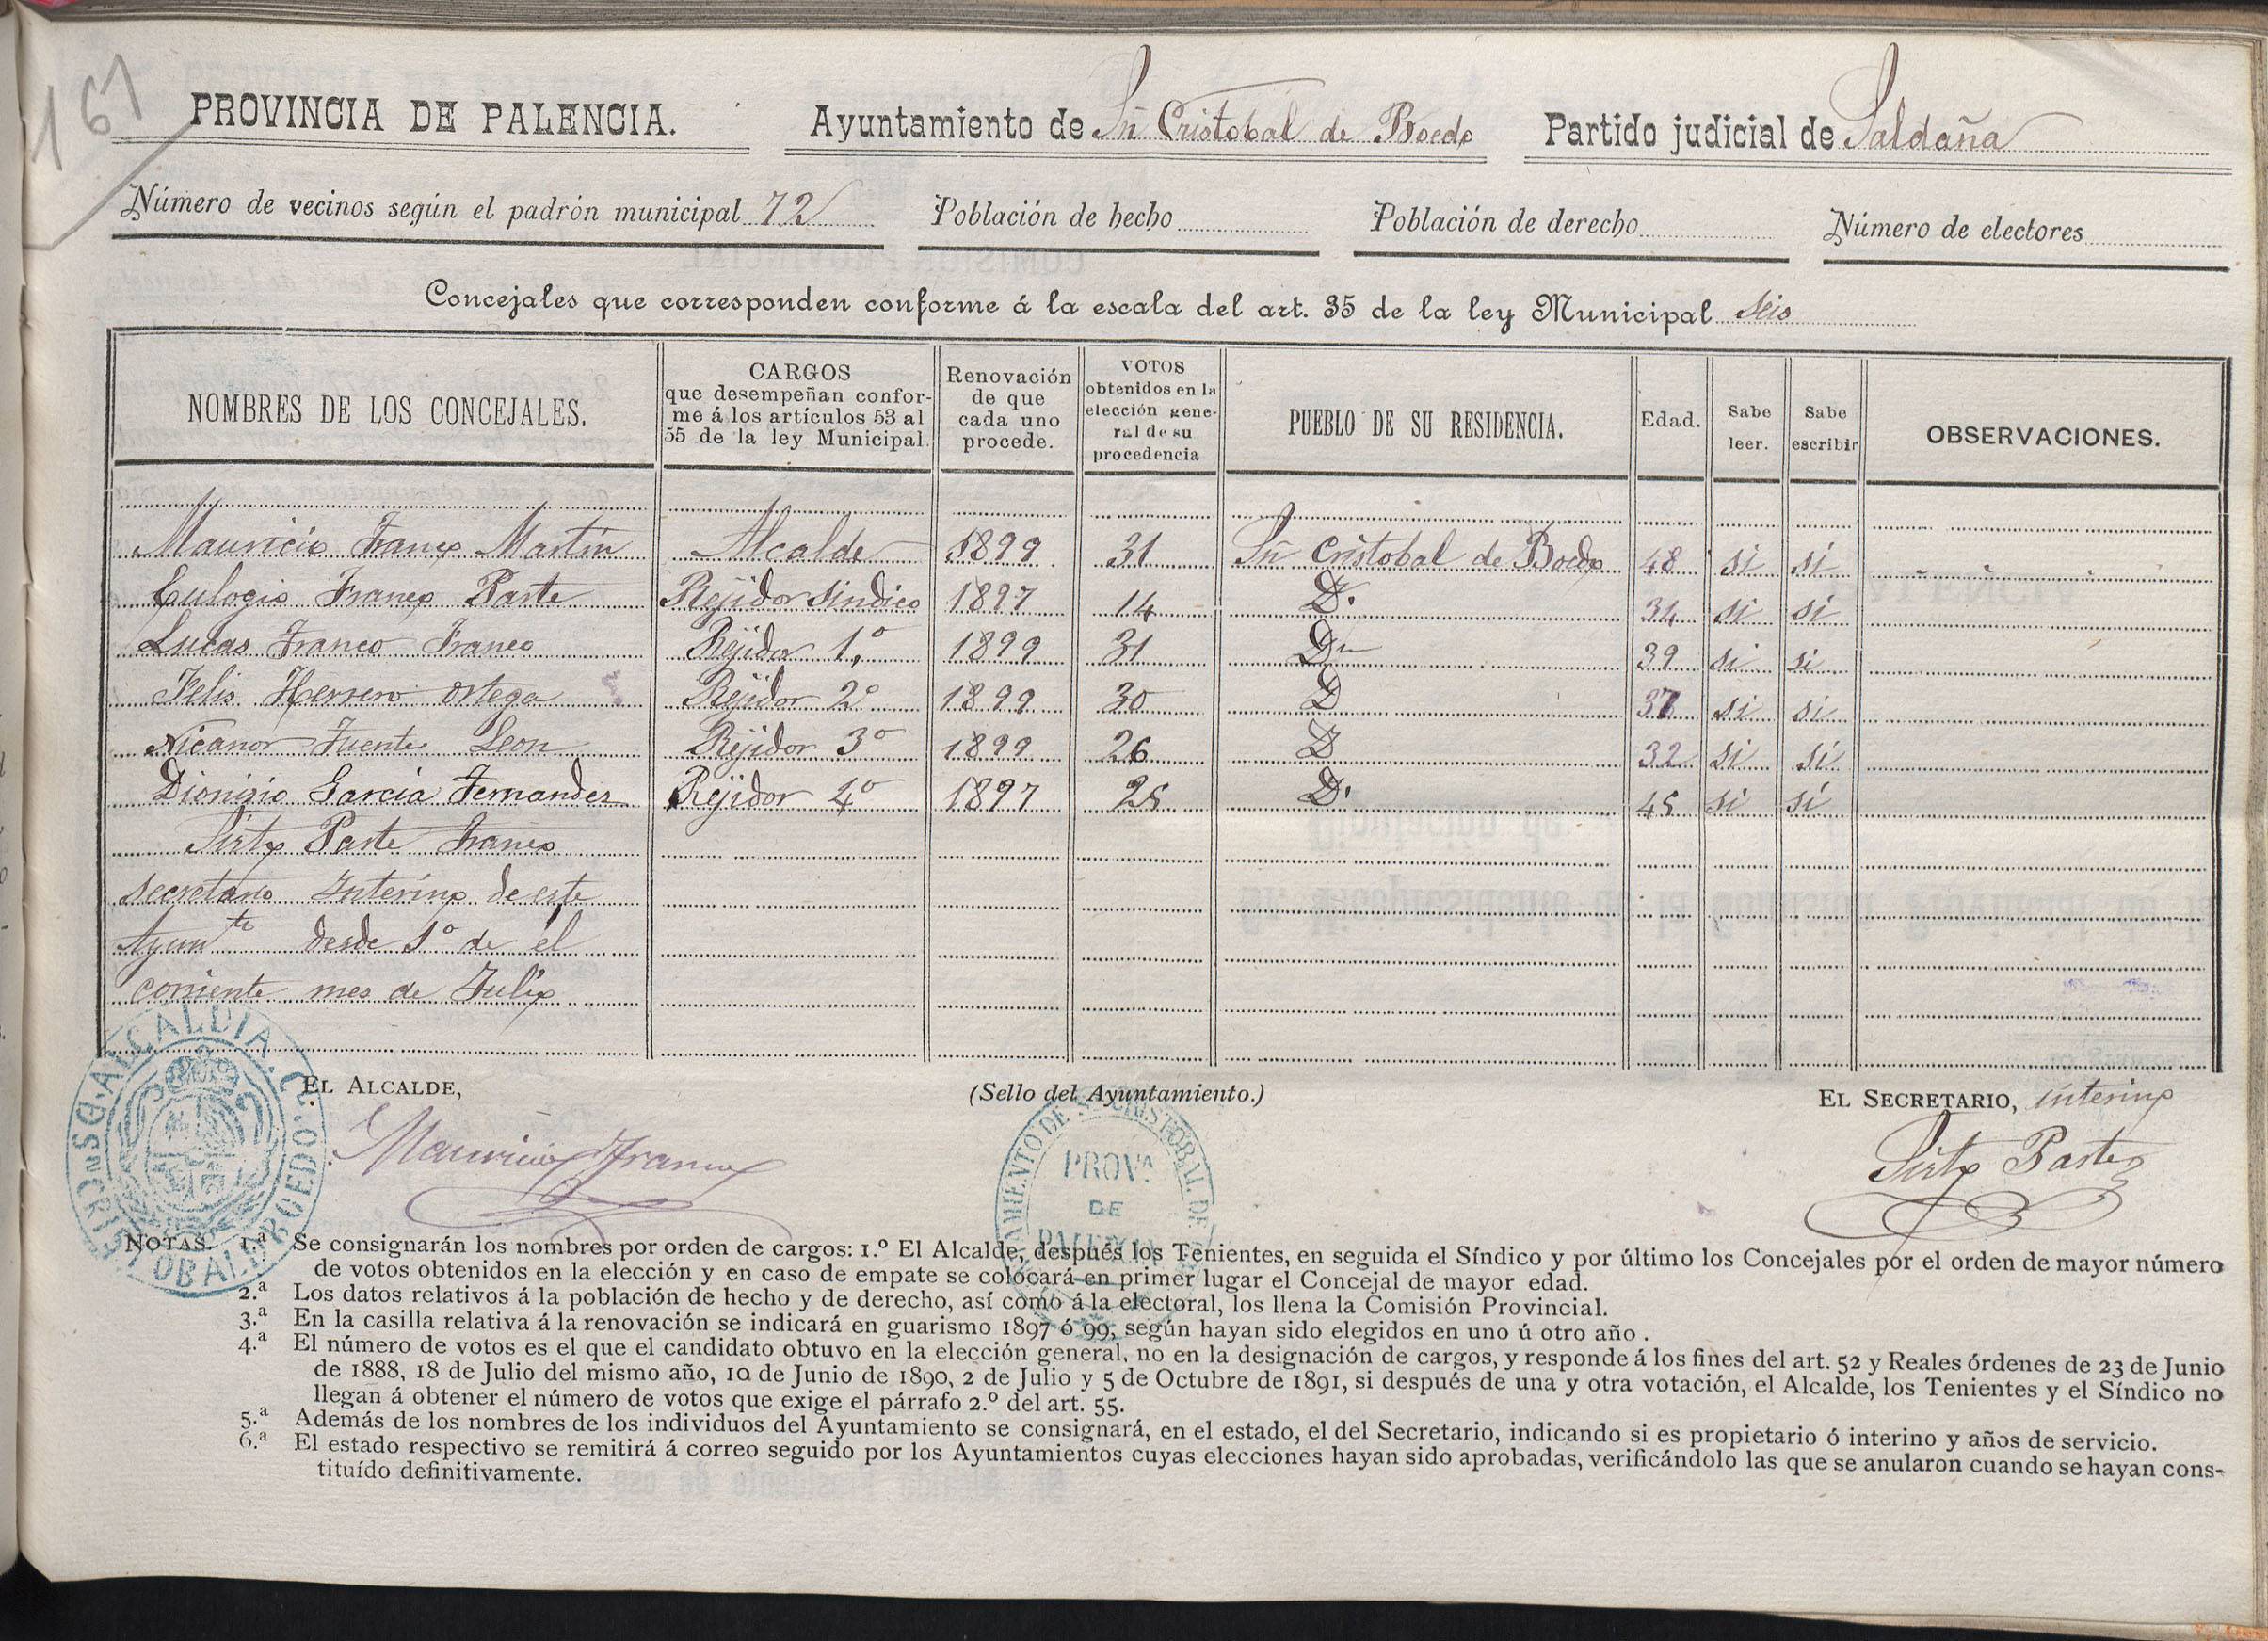 161
PROVINCIA DE PALENCIA. Ayuntamiento de Sn Cristobal de Boedo Partido judicial de Saldaña
Número de vecinos según el padrón municipal 72 Población de hecho Población de derecho Número de electores
Concejales que corresponden conforme á la escala del art. 35 de la ley Municipal seis
NOMBRES DE LOS CONCEJALES. CARGOS que desempeñan conforme á los artículos 53 al 55 de la ley Municipal. Renovación de que cada uno procede. VOTOS obtenidos en la elección general de su procedencia PUEBLO DE SU RESIDENCIA. Edad. Sabe leer. Sabe escribir OBSERVACIONES.
Mauricio Franco Martin Alcalde 1899 31 Sn Cristobal de Boedo 48 si si
Eulogio Franco Parte Rejidor sindico 1897 14 D. 34 si si
Lucas Franco Franco Rejidor 1º 1899 31 Dn 39 si si
Felis Herrero Ortega Rejidor 2º 1899 30 D 37 si si
Nicanor Fuente Leon Rejidor 3º 1899 26 D 32 si si
Dionisio Garcia Fernandez Rejidor 4º 1897 25 D. 45 si si
Sirto Parte Franco
secretario Interino de este
Ayunto desde 1º de el
corriente mes de Julio
EL ALCALDE, (Sello del Ayuntamiento.) EL SECRETARIO, interino
Mauricio Franco Sirto Parte
ALCALDIA C. DE SN CRISTOBAL D BOEDO
AYUNTAMIENTO DE S. CRISTOBAL DE
PROVA
DE
PALENCIA
NOTAS. 1.ª Se consignarán los nombres por orden de cargos: 1.º El Alcalde, después los Tenientes, en seguida el Síndico y por último los Concejales por el orden de mayor número
de votos obtenidos en la elección y en caso de empate se colocará en primer lugar el Concejal de mayor edad.
2.ª Los datos relativos á la población de hecho y de derecho, así como á la electoral, los llena la Comisión Provincial.
3.ª En la casilla relativa á la renovación se indicará en guarismo 1897 ó 99, según hayan sido elegidos en uno ú otro año.
4.ª El número de votos es el que el candidato obtuvo en la elección general, no en la designación de cargos, y responde á los fines del art. 52 y Reales órdenes de 23 de Junio
de 1888, 18 de Julio del mismo año, 10 de Junio de 1890, 2 de Julio y 5 de Octubre de 1891, si después de una y otra votación, el Alcalde, los Tenientes y el Síndico no
llegan á obtener el número de votos que exige el párrafo 2.º del art. 55.
5.ª Además de los nombres de los individuos del Ayuntamiento se consignará, en el estado, el del Secretario, indicando si es propietario ó interino y años de servicio.
6.ª El estado respectivo se remitirá á correo seguido por los Ayuntamientos cuyas elecciones hayan sido aprobadas, verificándolo las que se anularon cuando se hayan cons-
tituído definitivamente.